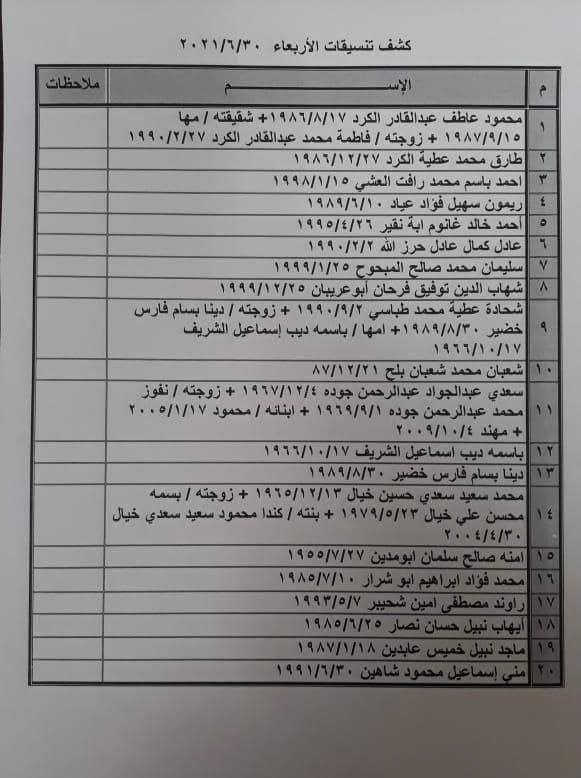 كشف تنسيقات الأربعاء ٢٠٢١/٦/٣٠
م الإســـــــــــم ملاحظات
١ محمود عاطف عبدالقادر الكرد ١٩٨٦/٨/١٧+ شقيقته / مها
١٩٨٧/٩/١٥ + زوجته / فاطمة محمد عبدالقادر الكرد ١٩٩٠/٢/٢٧
٢ طارق محمد عطية الكرد ١٩٨٦/١٢/٢٧
٣ احمد باسم محمد رافت العشي ١٩٩٨/١/١٥
٤ ريمون سهيل فؤاد عياد ١٩٨٩/٦/١٠
٥ أحمد خالد غانوم ابة نقير ١٩٩٥/٤/٢٦
٦ عادل كمال عادل حرز الله ١٩٩٠/٢/٢
٧ سليمان محمد صالح المبحوح ١٩٩٩/١/٢٥
٨ شهاب الدين توفيق فرحان أبوعريبان ١٩٩٩/١٢/٢٥
٩ شحادة عطية محمد طباسي ١٩٩٠/٩/٢ + زوجته / دينا بسام فارس
خضير ١٩٨٩/٨/٣٠+ امها / باسمه ديب إسماعيل الشريف
١٩٦٦/١٠/١٧
١٠ شعبان محمد شعبان بلح ٨٧/١٢/٢١
١١ سعدي عبدالجواد عبدالرحمن جوده ١٩٦٧/١٢/٤ + زوجته / نفوز
محمد عبدالرحمن جوده ١٩٦٩/٩/١ + ابنائه / محمود ٢٠٠٥/١/١٧
+ مهند ٢٠٠٩/١٠/٤
١٢ باسمه ديب اسماعيل الشريف ١٩٦٦/١٠/١٧
١٣ دينا بسام فارس خضير ١٩٨٩/٨/٣٠
١٤ محمد سعيد سعدي حسين خيال ١٩٦٥/١٢/١٣ + زوجته / بسمه
محسن علي خيال ١٩٧٩/٥/٢٣ + بنته / كندا محمود سعيد سعدي خيال
٢٠٠٤/٤/٣٠
١٥ امنه صالح سلمان ابومدين ١٩٥٥/٧/٢٧
١٦ محمد فؤاد ابراهيم ابو شرار ١٩٨٥/٧/١٠
١٧ راوند مصطفى امين شحيبر ١٩٩٣/٥/٧
١٨ أيهاب نبيل حسان نصار ١٩٨٥/٦/٢٥
١٩ ماجد نبيل خميس عابدين ١٩٨٧/١/١٨
٢٠ مني إسماعيل محمود شاهين ١٩٩١/٦/٣٠